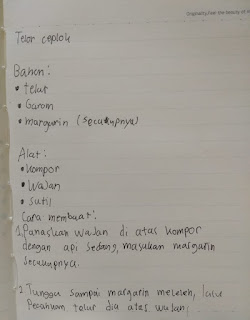 Telor ceplok
Bahan:
• telur
• Garam
• margarin (secukupnya)
Alat:
• Kompor
• Wajan
• Sutil
Cara membuat:
1. Panaskan wajan di atas kompor
dengan api sedang, masukan margarin
secukupnya.
2. Tunggu sampai margarin meleleh, lalu
Pecahkan telur dia atas wajan,